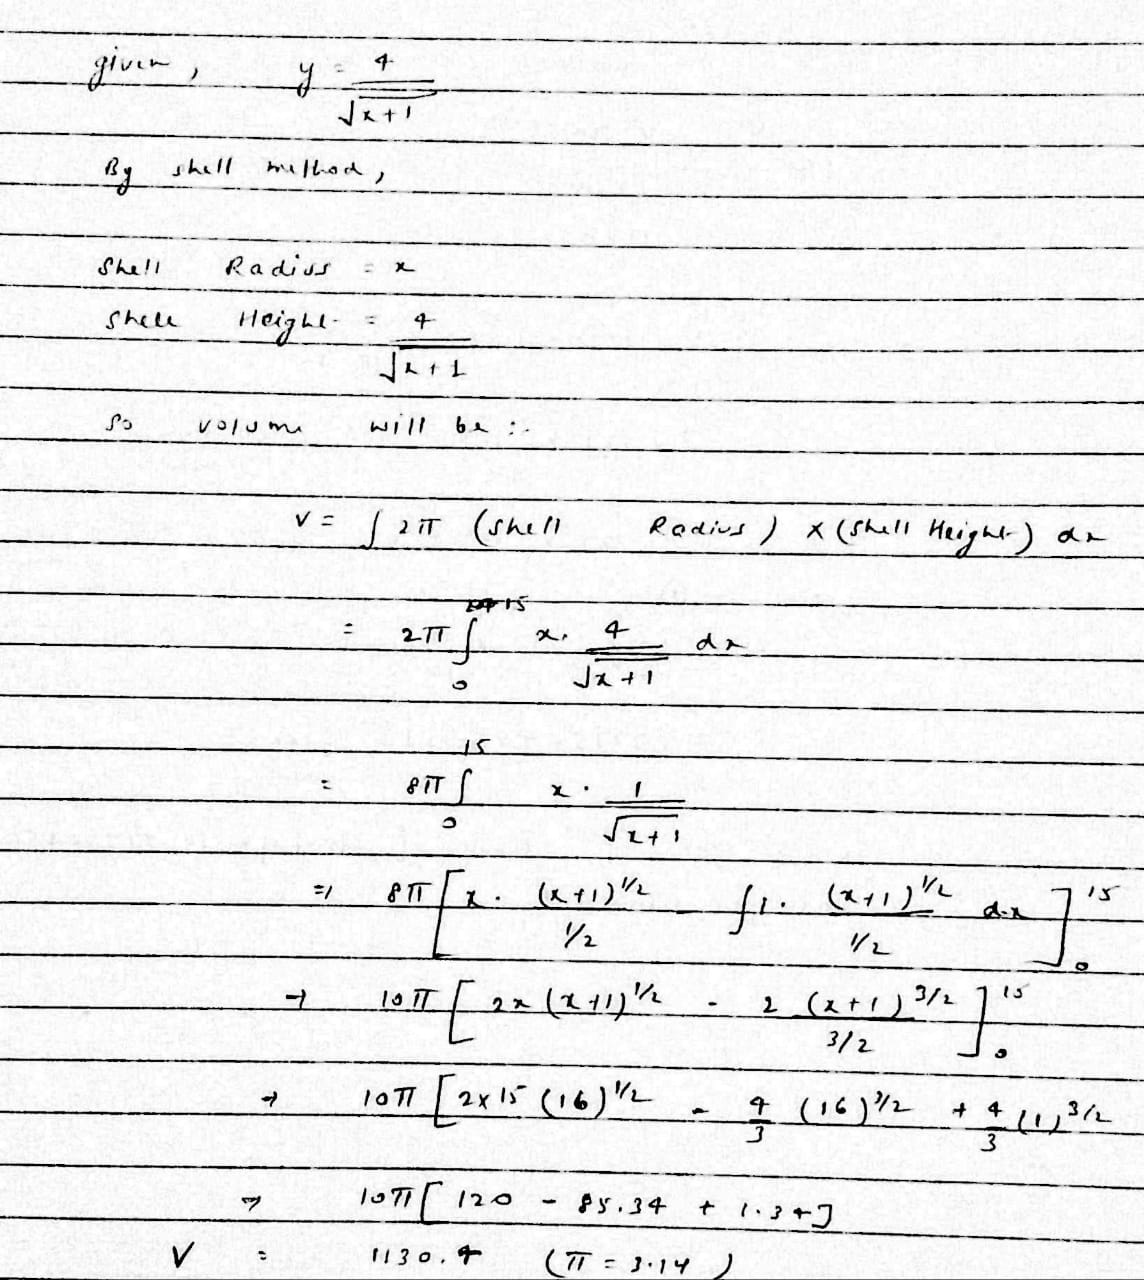 given, y = 4/√x+1
By shell method,
Shell Radius = x
Shell Height = 4/√x+1
So volume will be :-
V = ∫ 2π (Shell Radius) × (Shell Height) dx
= 2π ∫₀¹⁵ x. 4/√x+1 dx
= 8π ∫₀¹⁵ x . 1/√x+1
⇒ 8π [ x. (x+1)^1/2 / 1/2 - ∫1. (x+1)^1/2 / 1/2 dx ]₀¹⁵
→ 10π [ 2x (x+1)^1/2 - 2 (x+1)^3/2 / 3/2 ]₀¹⁵
→ 10π [ 2x15 (16)^1/2 - 4/3 (16)^3/2 + 4/3 (1)^3/2
⇒ 10π [ 120 - 85.34 + 1.34 ]
V = 1130.4 (π = 3.14)